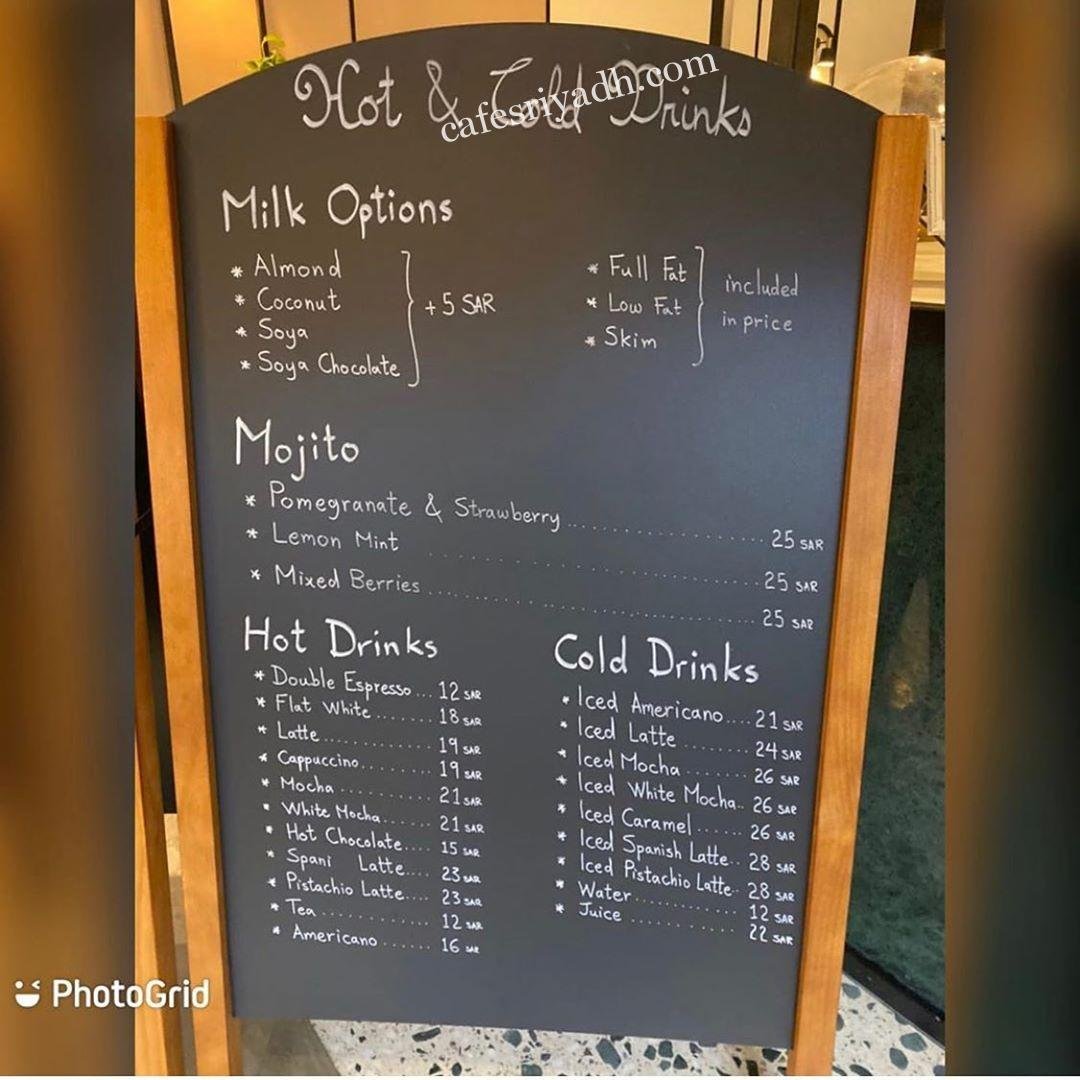 Hot & Cold Drinks
cafesriyadh.com
Milk Options
* Almond
* Coconut
* Soya
* Soya Chocolate
+5 SAR
* Full Fat
* Low Fat
* Skim
included
in price
Mojito
* Pomegranate & Strawberry.................... 25 SAR
* Lemon Mint .................... 25 SAR
* Mixed Berries .................... 25 SAR
Hot Drinks
* Double Espresso... 12 SAR
* Flat White....... 18 SAR
* Latte............ 19 SAR
* Cappuccino........ 19 SAR
* Mocha.......... 21 SAR
* White Mocha...... 21 SAR
* Hot Chocolate.... 15 SAR
* Spani Latte.... 23 SAR
* Pistachio Latte.... 23 SAR
* Tea............ 12 SAR
* Americano...... 16 SAR
Cold Drinks
* Iced Americano.... 21 SAR
* Iced Latte........ 24 SAR
* Iced Mocha....... 26 SAR
* Iced White Mocha.. 26 SAR
* Iced Caramel...... 26 SAR
* Iced Spanish Latte.. 28 SAR
* Iced Pistachio Latte.. 28 SAR
* Water............ 12 SAR
* Juice............ 22 SAR
PhotoGrid